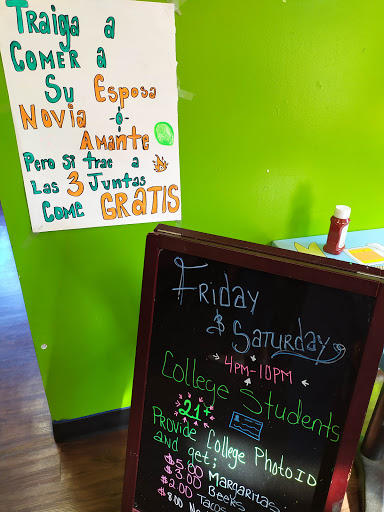 Traiga a
COMER a
Su Esposa
NOVIA -o-
AMANTE
Pero Si trae a
Las 3 Juntas
COME GRATIS
Friday
& Saturday
4PM-10PM
College Students
21+
Provide College Photo ID
and get;
$5.00 Margaritas
$3.00 Beers
$2.00 Tacos
$8.00